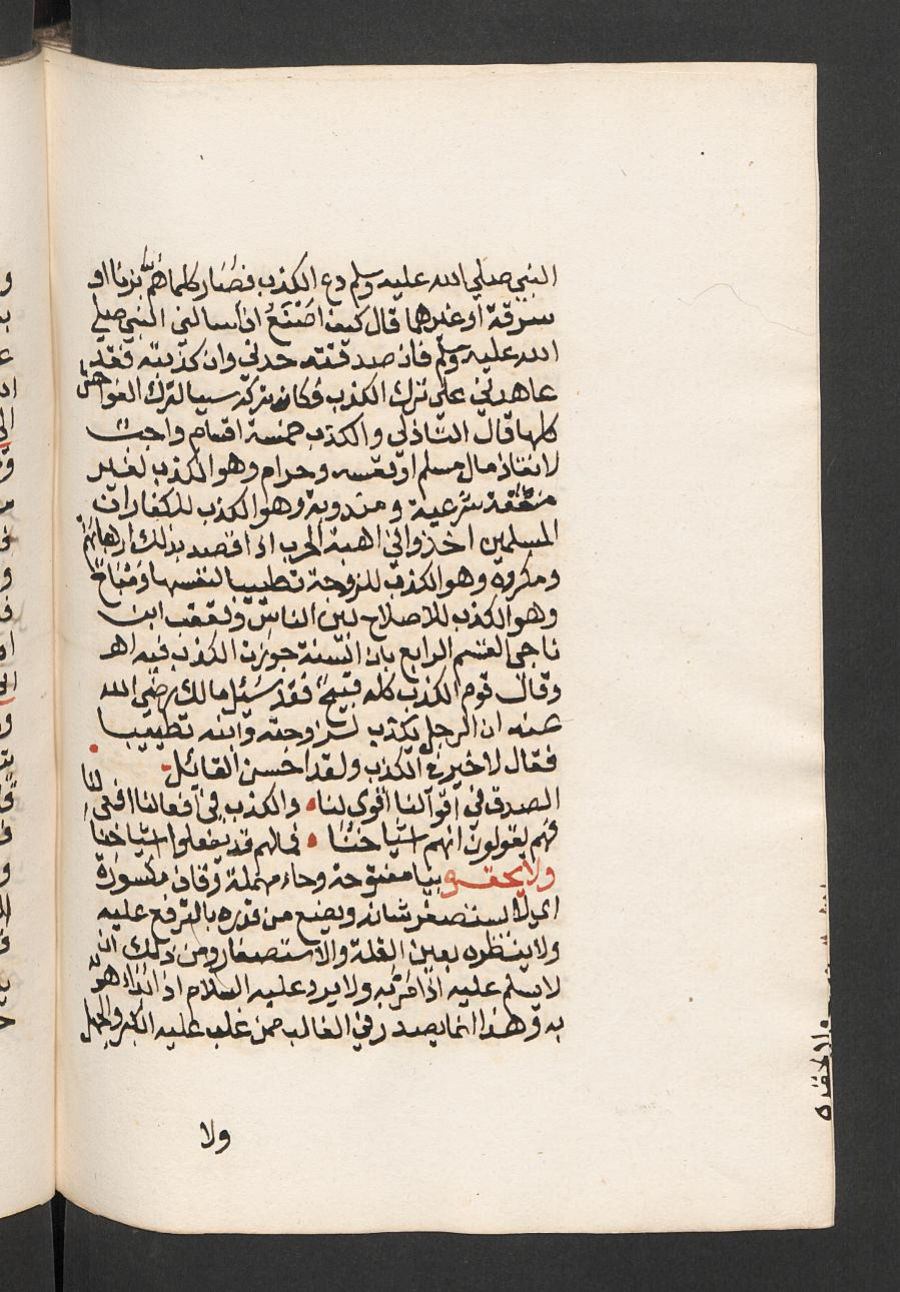 النبي صلي الله عليه وسلم دع الكذب فصار كلما هم بزنا او
سرقة او غيرهما قال كيف اصنع اذا سالني النبي صلي
الله عليه وسلم فان صدقته حدني وان كذبته فقد
عاهدني على ترك الكذب فكان تركه سببا لترك الفواحش
كلها قال الشاذلي والكذب خمسة اقسام واجب
لانقاذ مال مسلم او نفسه وحرام وهو الكذب لغير
منفعة شرعية ومندوبة وهو الكذب للكفار ان
المسلمين اخذوا في اهبة الحرب اذا قصد بذلك ارهابهم
ومكروه وهو الكذب للزوجة تطييبا لنفسها ومباح
وهو الكذب للاصلاح بين الناس وتعقب ابن
ناجي القسم الرابع بان السنة جوزت الكذب فيه اهـ
وقال قوم الكذب كله قبيح فقد سئل مالك رضي الله
عنه ان الرجل يكذب لزوجته وابنه تطييبا
فقال لا خير في الكذب ولقد احسن القائل
الصدق في اقوالنا اقوى لنا والكذب في افعالنا افعى لنا
فهم يقولون انهم اشياخنا فما لهم قد يفعلوا اشياخنا
ولا يحقره بيا مفتوحة وحاء مهملة وقاف مكسورة
اي لا يستصغر شانه ويضع من قدره بالترفع عليه
ولا ينظره بعين القلة والاستصغار ومن ذلك ان
لا يسلم عليه اذا مر به ولا يرد عليه السلام اذا بداه هو
به وهذا انما يصدر في الغالب ممن غلب عليه الكبر والجهل
ولا
ولا يحقره